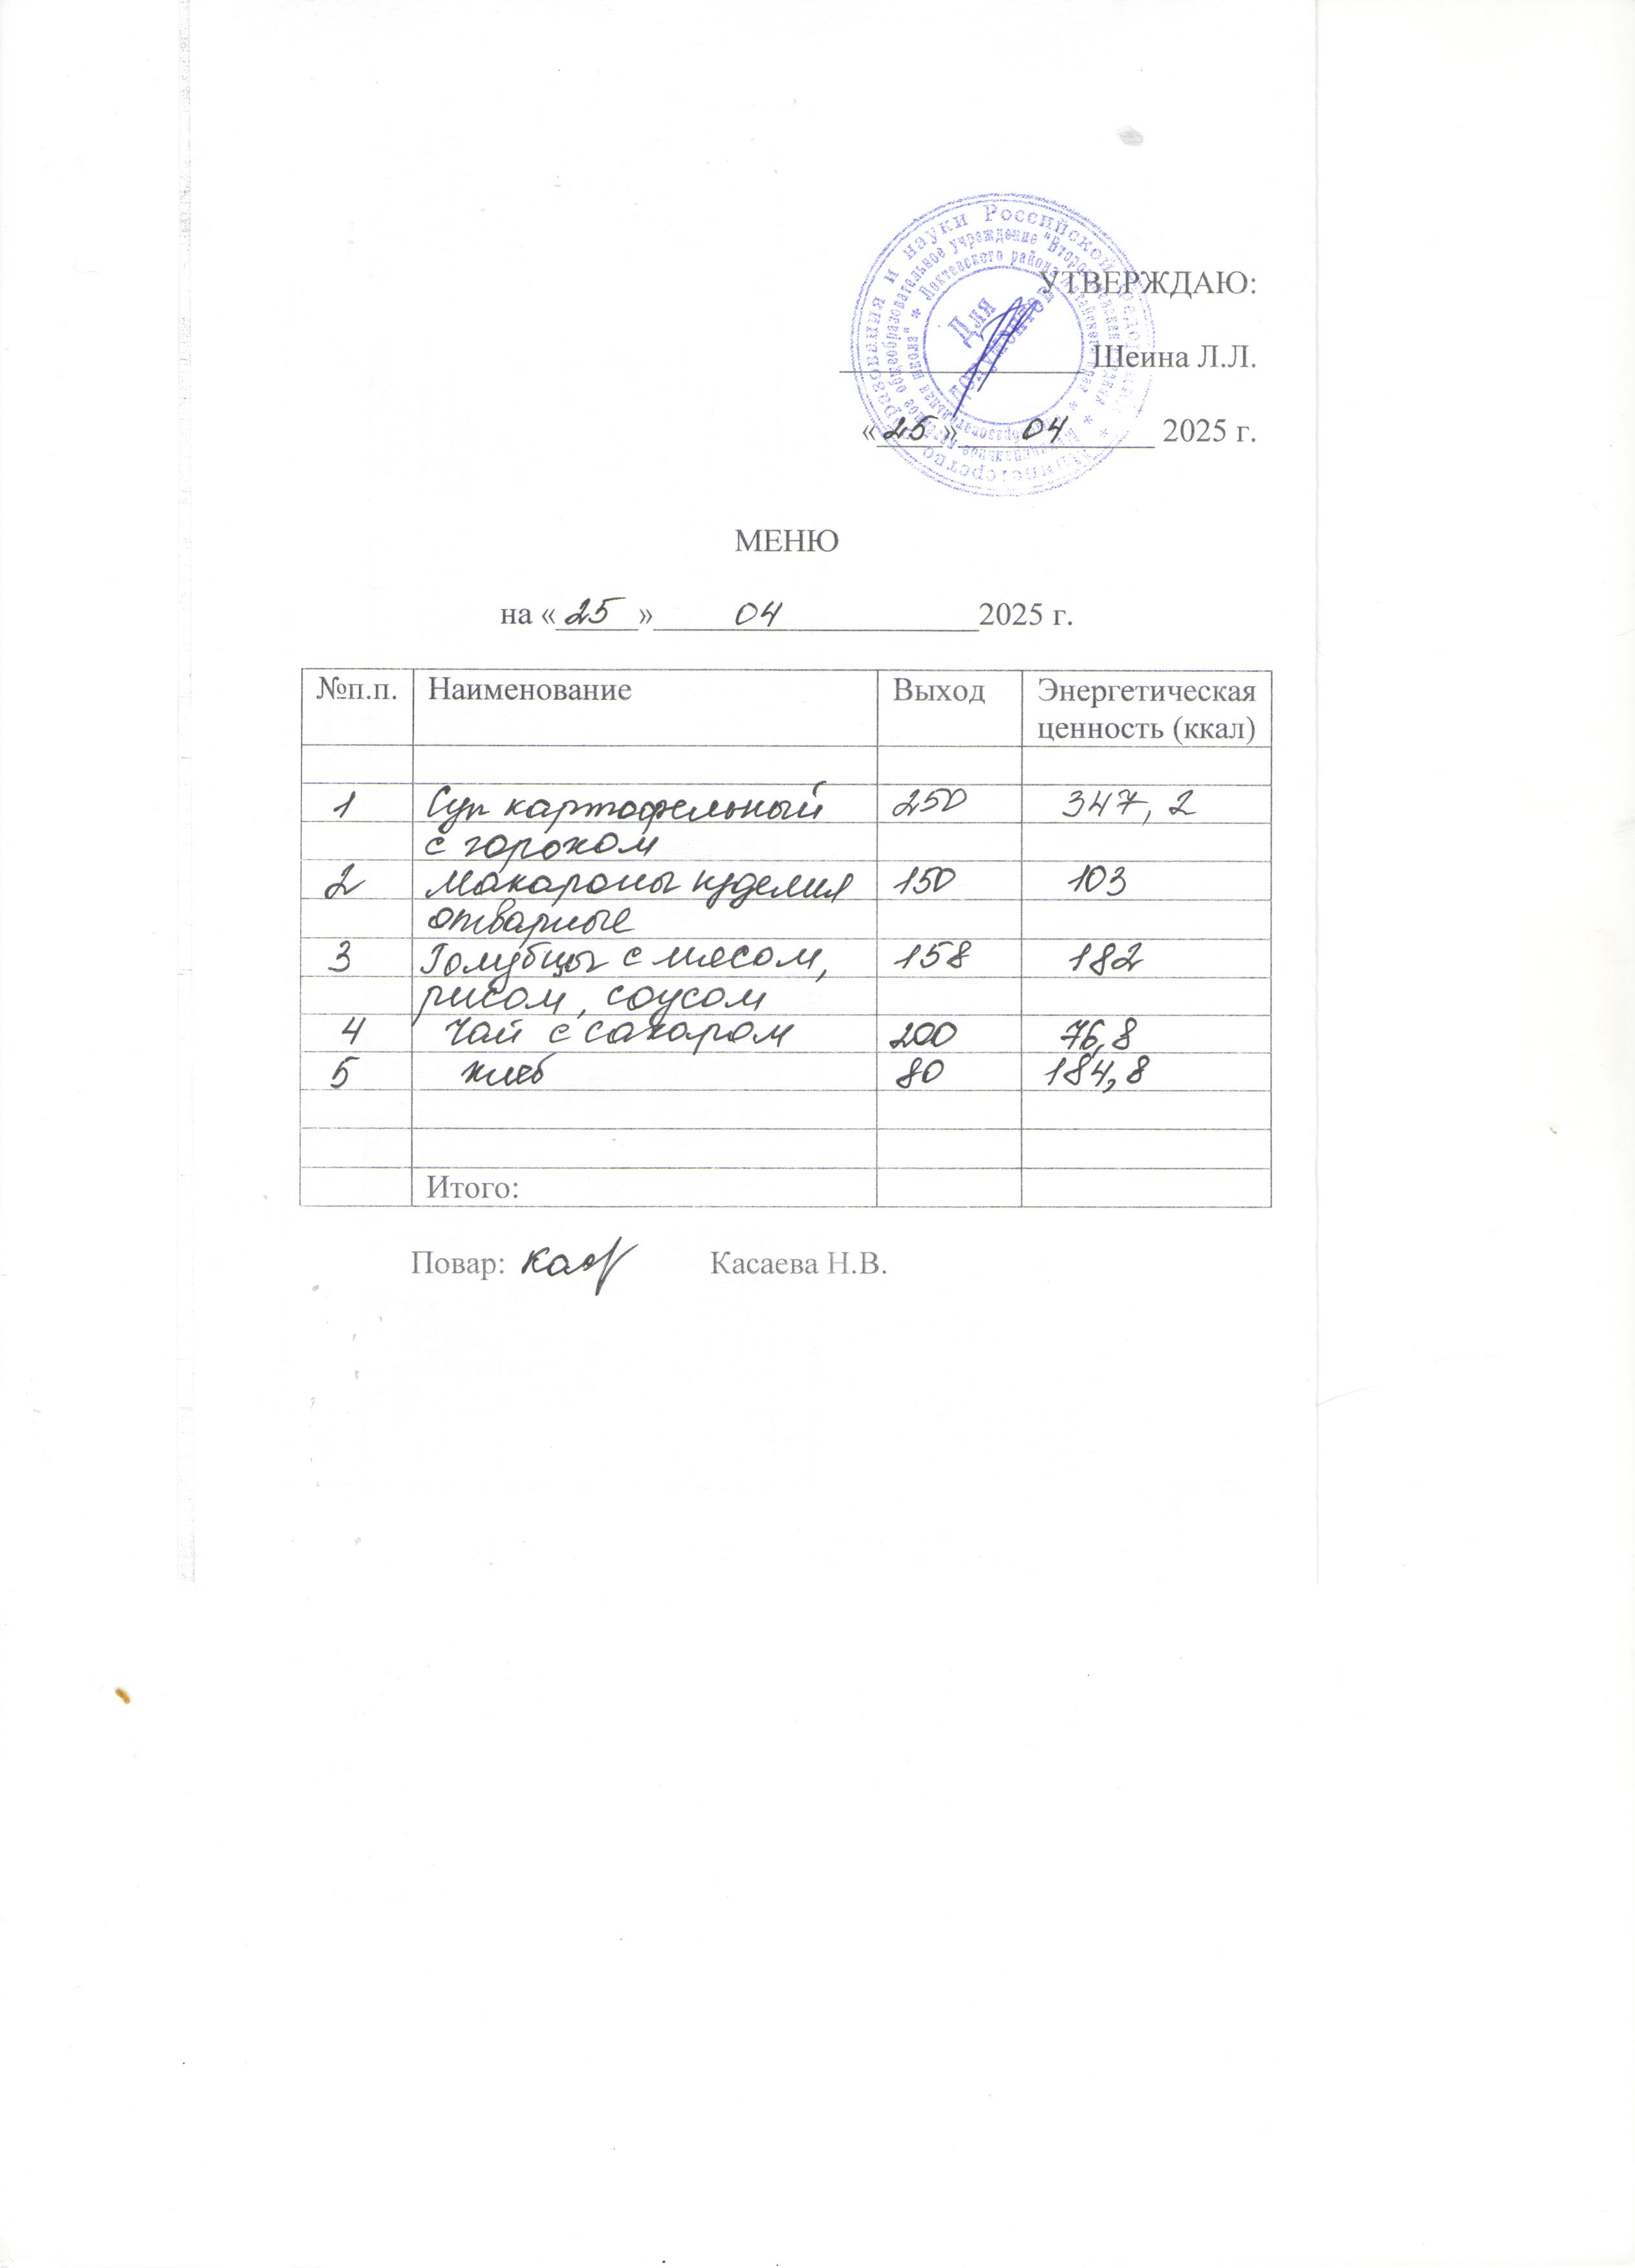 УТВЕРЖДАЮ:
Шеина Л.Л.
«25» 04 2025 г.
Для документов
МЕНЮ
на «25» 04 2025 г.
№п.п. Наименование Выход Энергетическая
ценность (ккал)
1 Суп картофельный 250 347,2
с горохом
2 Макароны изделия 150 103
отварные
3 Голубцы с мясом, 158 182
рисом, соусом
4 Чай с сахаром 200 76,8
5 хлеб 80 184,8
Итого:
Повар: Касаева Н.В.